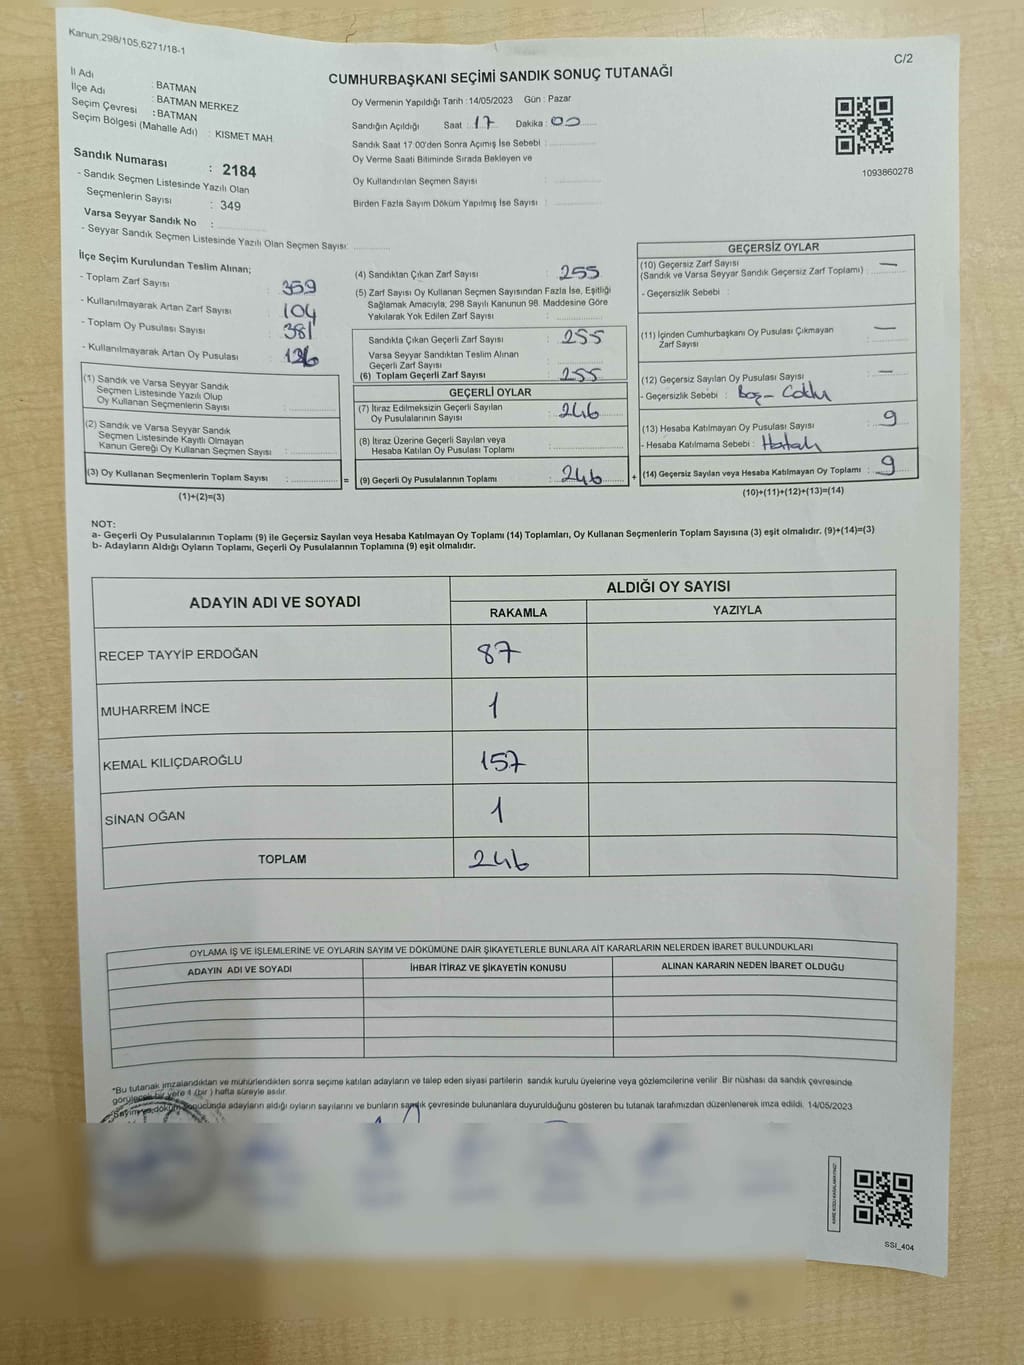 Kanun,298/105,6271/18-1
C/2
CUMHURBAŞKANI SEÇİMİ SANDIK SONUÇ TUTANAĞI
İl Adı : BATMAN
İlçe Adı : BATMAN MERKEZ
Seçim Çevresi : BATMAN
Seçim Bölgesi (Mahalle Adı) : KISMET MAH.
Sandık Numarası : 2184
- Sandık Seçmen Listesinde Yazılı Olan
Seçmenlerin Sayısı : 349
Varsa Seyyar Sandık No :
- Seyyar Sandık Seçmen Listesinde Yazılı Olan Seçmen Sayısı:
Oy Vermenin Yapıldığı Tarih : 14/05/2023 Gün : Pazar
Sandığın Açıldığı Saat : 17 Dakika : 00
Sandık Saat 17.00'den Sonra Açımış İse Sebebi :
Oy Verme Saati Bitiminde Sırada Bekleyen ve
Oy Kullandırılan Seçmen Sayısı :
Birden Fazla Sayım Döküm Yapılmış İse Sayısı :
1093860278
İlçe Seçim Kurulundan Teslim Alınan;
- Toplam Zarf Sayısı : 359
- Kullanılmayarak Artan Zarf Sayısı : 104
- Toplam Oy Pusulası Sayısı : 381
- Kullanılmayarak Artan Oy Pusulası :
(1) Sandık ve Varsa Seyyar Sandık
Seçmen Listesinde Yazılı Olup
Oy Kullanan Seçmenlerin Sayısı :
(2) Sandık ve Varsa Seyyar Sandık
Seçmen Listesinde Kayıtlı Olmayan
Kanun Gereği Oy Kullanan Seçmen Sayısı :
(3) Oy Kullanan Seçmenlerin Toplam Sayısı : =
(1)+(2)=(3)
(4) Sandıktan Çıkan Zarf Sayısı : 255
(5) Zarf Sayısı Oy Kullanan Seçmen Sayısından Fazla İse, Eşitliği
Sağlamak Amacıyla; 298 Sayılı Kanunun 98. Maddesine Göre
Yakılarak Yok Edilen Zarf Sayısı :
Sandıkta Çıkan Geçerli Zarf Sayısı : 255
Varsa Seyyar Sandıktan Teslim Alınan
Geçerli Zarf Sayısı :
(6) Toplam Geçerli Zarf Sayısı : 255
GEÇERLİ OYLAR
(7) İtiraz Edilmeksizin Geçerli Sayılan
Oy Pusulalarının Sayısı : 246
(8) İtiraz Üzerine Geçerli Sayılan veya
Hesaba Katılan Oy Pusulası Toplamı :
(9) Geçerli Oy Pusulalarının Toplamı : 246 +
GEÇERSİZ OYLAR
(10) Geçersiz Zarf Sayısı : —
(Sandık ve Varsa Seyyar Sandık Geçersiz Zarf Toplamı)
- Geçersizlik Sebebi :
(11) İçinden Cumhurbaşkanı Oy Pusulası Çıkmayan
Zarf Sayısı : —
(12) Geçersiz Sayılan Oy Pusulası Sayısı : —
- Geçersizlik Sebebi : Boş -
(13) Hesaba Katılmayan Oy Pusulası Sayısı : 9
- Hesaba Katılmama Sebebi : Hatalı
(14) Geçersiz Sayılan veya Hesaba Katılmayan Oy Toplamı : 9
(10)+(11)+(12)+(13)=(14)
NOT:
a- Geçerli Oy Pusulalarının Toplamı (9) ile Geçersiz Sayılan veya Hesaba Katılmayan Oy Toplamı (14) Toplamları, Oy Kullanan Seçmenlerin Toplam Sayısına (3) eşit olmalıdır. (9)+(14)=(3)
b- Adayların Aldığı Oyların Toplamı, Geçerli Oy Pusulalarının Toplamına (9) eşit olmalıdır.
ADAYIN ADI VE SOYADI ALDIĞI OY SAYISI
RAKAMLA YAZIYLA
RECEP TAYYİP ERDOĞAN 87
MUHARREM İNCE 1
KEMAL KILIÇDAROĞLU 157
SİNAN OĞAN 1
TOPLAM 246
OYLAMA İŞ VE İŞLEMLERİNE VE OYLARIN SAYIM VE DÖKÜMÜNE DAİR ŞİKAYETLERLE BUNLARA AİT KARARLARIN NELERDEN İBARET BULUNDUKLARI
ADAYIN ADI VE SOYADI İHBAR İTİRAZ VE ŞİKAYETİN KONUSU ALINAN KARARIN NEDEN İBARET OLDUĞU
*Bu tutanak imzalandıktan ve mühürlendikten sonra seçime katılan adayların ve talep eden siyasi partilerin sandık kurulu üyelerine veya gözlemcilerine verilir. Bir nüshası da sandık çevresinde
görülecek bir yere 1 (bir) hafta süreyle asılır.
Sayım ve döküm sonucunda adayların aldığı oyların sayılarını ve bunların sandık çevresinde bulunanlara duyurulduğunu gösteren bu tutanak tarafımızdan düzenlenerek imza edildi. 14/05/2023
SSI_404